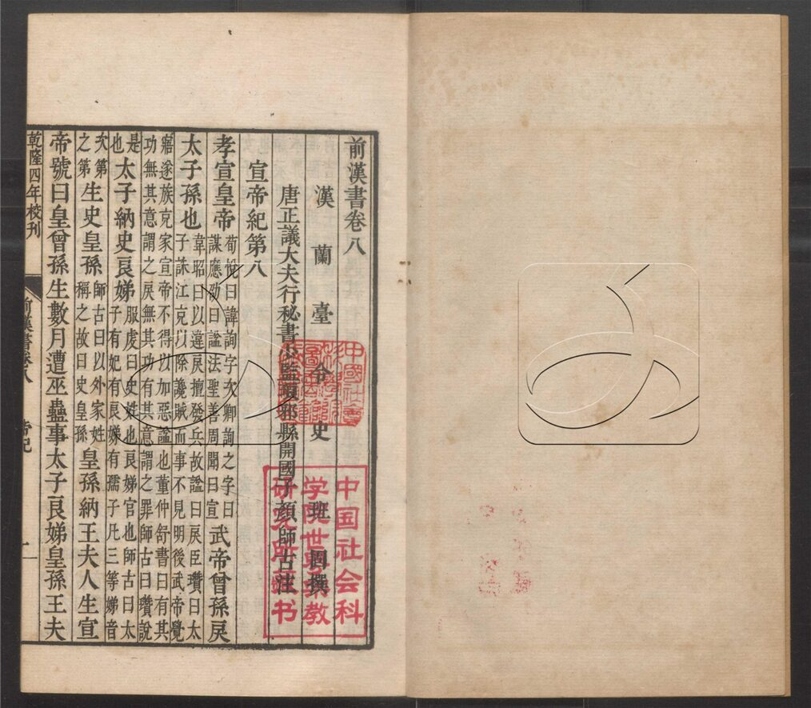 前漢書卷八
漢蘭臺令史班固撰
唐正議大夫行秘書少監琅邪縣開國子顏師古注
宣帝紀第八
孝宣皇帝荀悅曰諱詢字次卿詢之字曰謀應劭曰諡法聖善周聞曰宣武帝曾孫戾
太子孫也韋昭曰以違戾擅發兵故諡曰戾臣瓚曰太子誅江充以除讒賊而事不見明後武帝覺
寤遂族充家宣帝不得以加惡諡也董仲舒書曰有其功無其意謂之戾無其功有其意謂之罪師古曰瓚說
是也太子納史良娣服虔曰史姓也良娣官也師古曰太子有妃有良娣有孺子凡三等娣音
次第之第生史皇孫師古曰以外家姓稱之故曰史皇孫皇孫納王夫人生宣
帝號曰皇曾孫生數月遭巫蠱事太子良娣皇孫王夫
乾隆四年校刊
前漢書卷八
中国社会科
学院世界宗教
研究所藏书